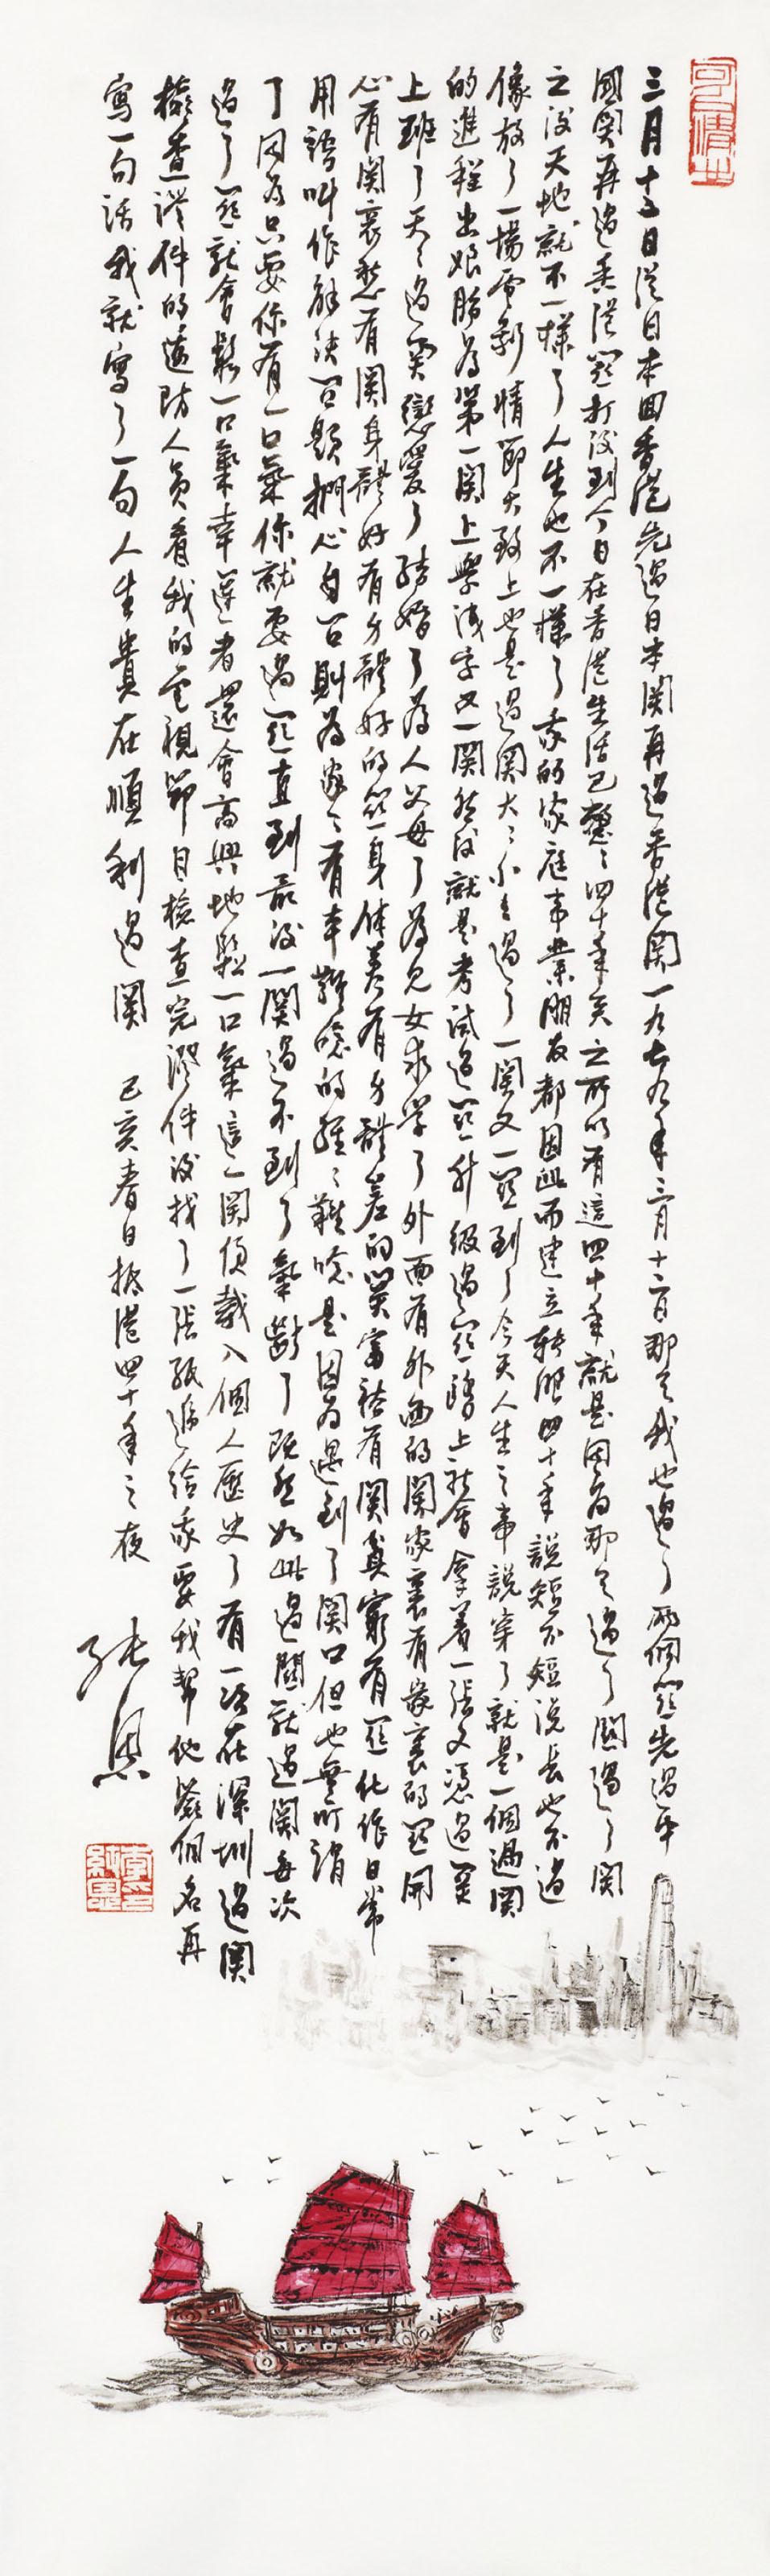 三月十五日從日本回香港先過日本關再過香港關一九七九年三月十六日那天我也過了兩個關先過中
國關再過香港關打從到今日在香港生活已整整四十年矣之所以有這四十年就是因為那天過了關過了關
之後天地就不一樣了人生也不一樣了我的家庭事業朋友都因此而建立轉眼四十年說短不短說長也不過
像放了一場電影情節大致上也是過關大大小小過了一關又一關到了今天人生之事說穿了就是一個過關
的過程出娘胎為第一關上學識字又一關然後就是考試過關升級過關踏上社會拿著一張文憑過關
上班了天天過關戀愛了結婚了為人父母了為兒女求學了外面有外面的關家裏有家裏的關開
心有關哀愁有關身體好有身體好的關身體差有身體差的關富裕有關貧窮有關化作日常
用語叫作解決問題捫心自問則為家家有本難唸的經難唸是因為遇到了關口但也無所謂
了因為只要你有一口氣你就要過關直到最後一關過不到了氣斷了既然如此過關就過關每次
過了關就會鬆一口氣幸運者還會高興地鬆一口氣這一關便載入個人歷史了有一次在深圳過關
檢查證件的邊防人員看我的電視節目檢查完證件後找了一張紙遞給我要我幫他簽個名再
寫一句話我就寫了一句人生貴在順利過關 己亥春日抵港四十年之夜